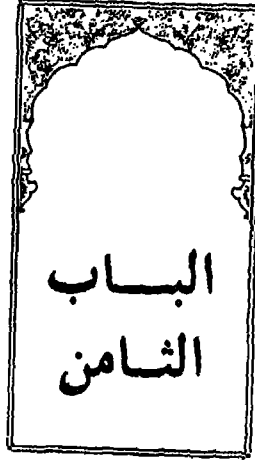 البـــاب
الثـــامن